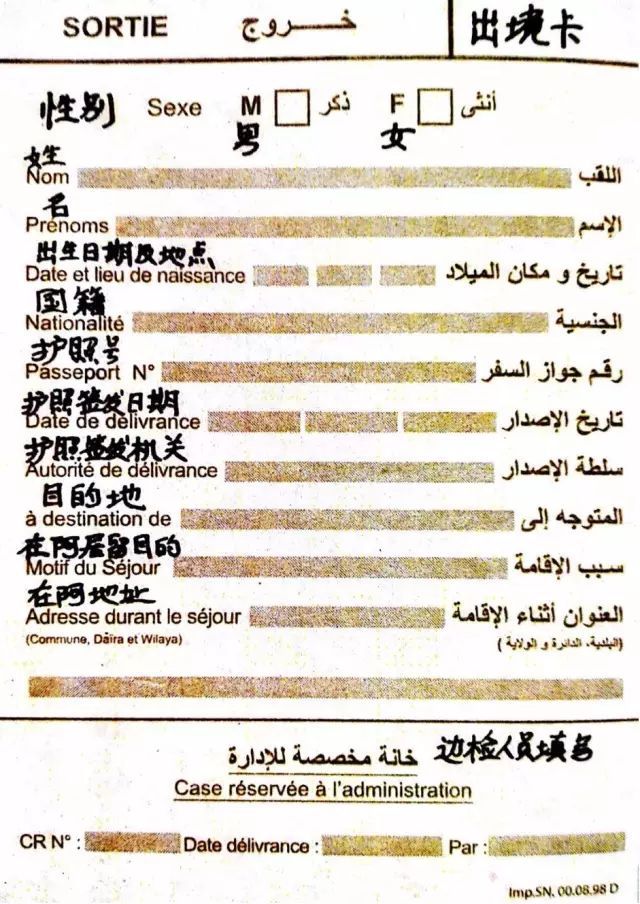 SORTIE خروج 出境卡
性别 Sexe M ذكر F أنثى
男 女
姓
Nom اللقب
名
Prénoms الإسم
出生日期及地点
Date et lieu de naissance تاريخ و مكان الميلاد
国籍
Nationalité الجنسية
护照号
Passeport N° رقم جواز السفر
护照签发日期
Date de délivrance تاريخ الإصدار
护照签发机关
Autorité de délivrance سلطة الإصدار
目的地
à destination de المتوجه إلى
在阿居留目的
Motif du Séjour سبب الإقامة
在阿地址
Adresse durant le séjour العنوان أثناء الإقامة
(Commune, Daïra et Wilaya) (البلدية، الدائرة و الولاية)
خانة مخصصة للإدارة 边检人员填写
Case réservée à l'administration
CR N° : Date délivrance : Par :
Imp.SN. 00.08.98 D